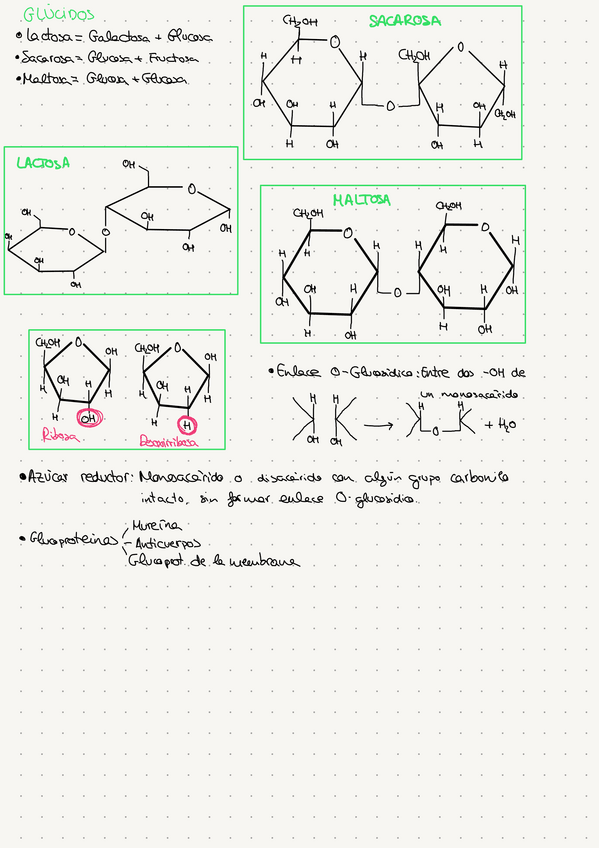 GLÚCIDOS
• Lactosa = Galactosa + Glucosa
• Sacarosa = Glucosa + Fructosa
• Maltosa = Glucosa + Glucosa
SACAROSA
CH₂OH
O
H
H
H
OH
OH
H
H
OH
O
CH₂OH
O
H
H
OH
OH
H
CH₂OH
LACTOSA
OH
O
OH
OH
OH
O
OH
O
OH
OH
OH
MALTOSA
CH₂OH
O
H
H
H
OH
OH
H
H
OH
O
CH₂OH
O
H
H
H
OH
H
H
OH
OH
CH₂OH
O
OH
H
OH
H
H
H
OH
Ribosa
CH₂OH
O
OH
H
OH
H
H
H
H
Desoxirribosa
• Enlace O-Glucosídico: Entre dos -OH de
un monosacárido
H H
OH OH
→
H H
O
+ H₂O
• Azúcar reductor: Monosacárido o disacárido con algún grupo carbonilo
intacto, sin formar enlace O-glucosídico.
• Glucoproteínas
Mureína
- Anticuerpos
Glucoprot. de la membrana